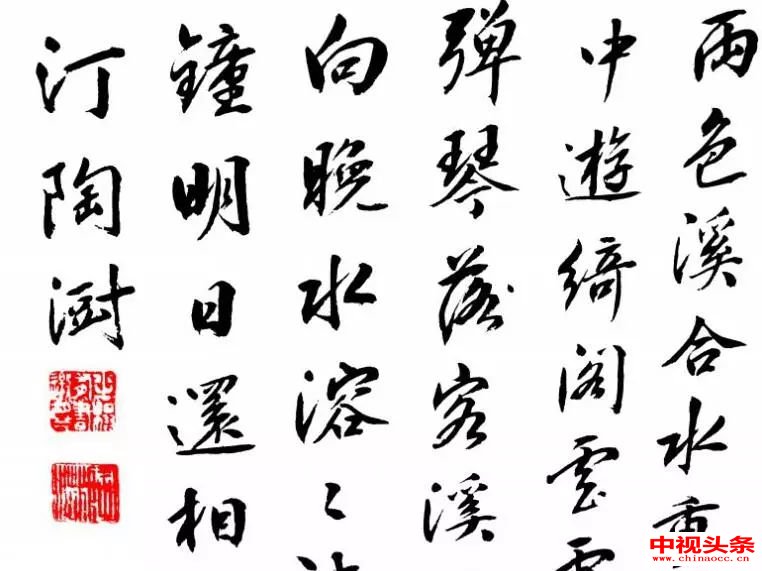 雨色溪合水重
中遊綺閣雲
弹琴落客溪
向晚水溶〻
鐘明日還相
汀陶澍
中视头条
www.chinaocc.cn